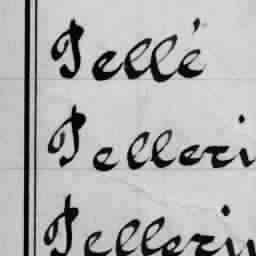 Pellé
Pelleri
Pellerin